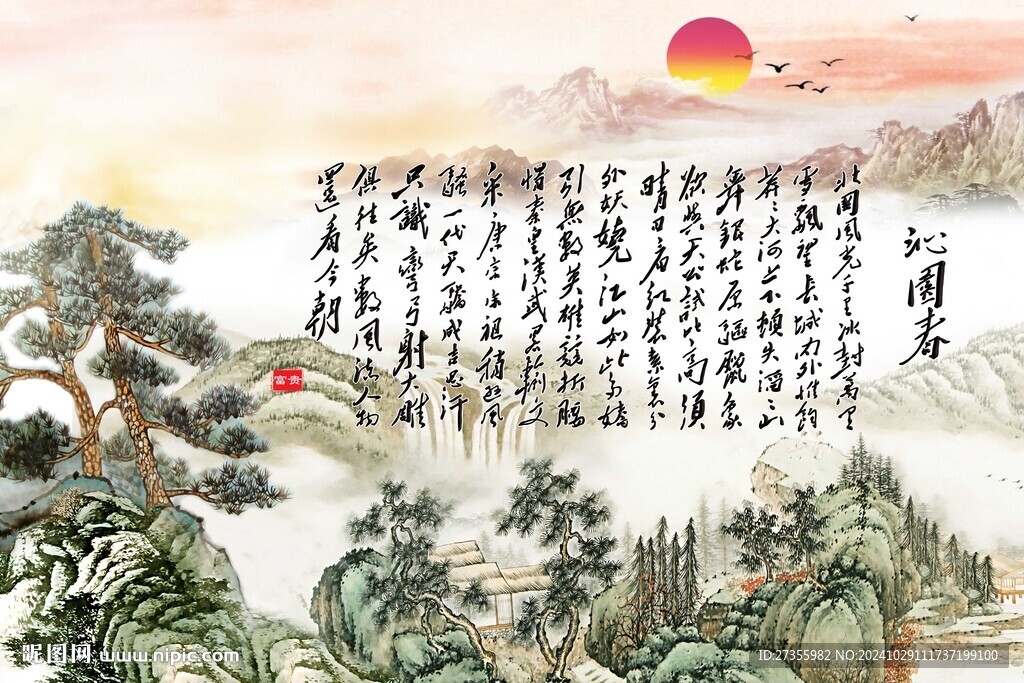 沁園春
北国風光千里冰封萬里
雪飄望長城内外惟餘
莽〻大河上下頓失滔〻山
舞銀蛇原驅臘象
欲與天公試比高須
晴日看紅裝素裹分
外妖嬈江山如此多嬌
引無數英雄競折腰
惜秦皇漢武略輸文
采唐宗宋祖稍遜風
騷一代天驕成吉思汗
只識彎弓射大雕
俱往矣數風流人物
還看今朝
富贵
昵图网 www.nipic.com
ID:27355982 NO:20241029111737199100